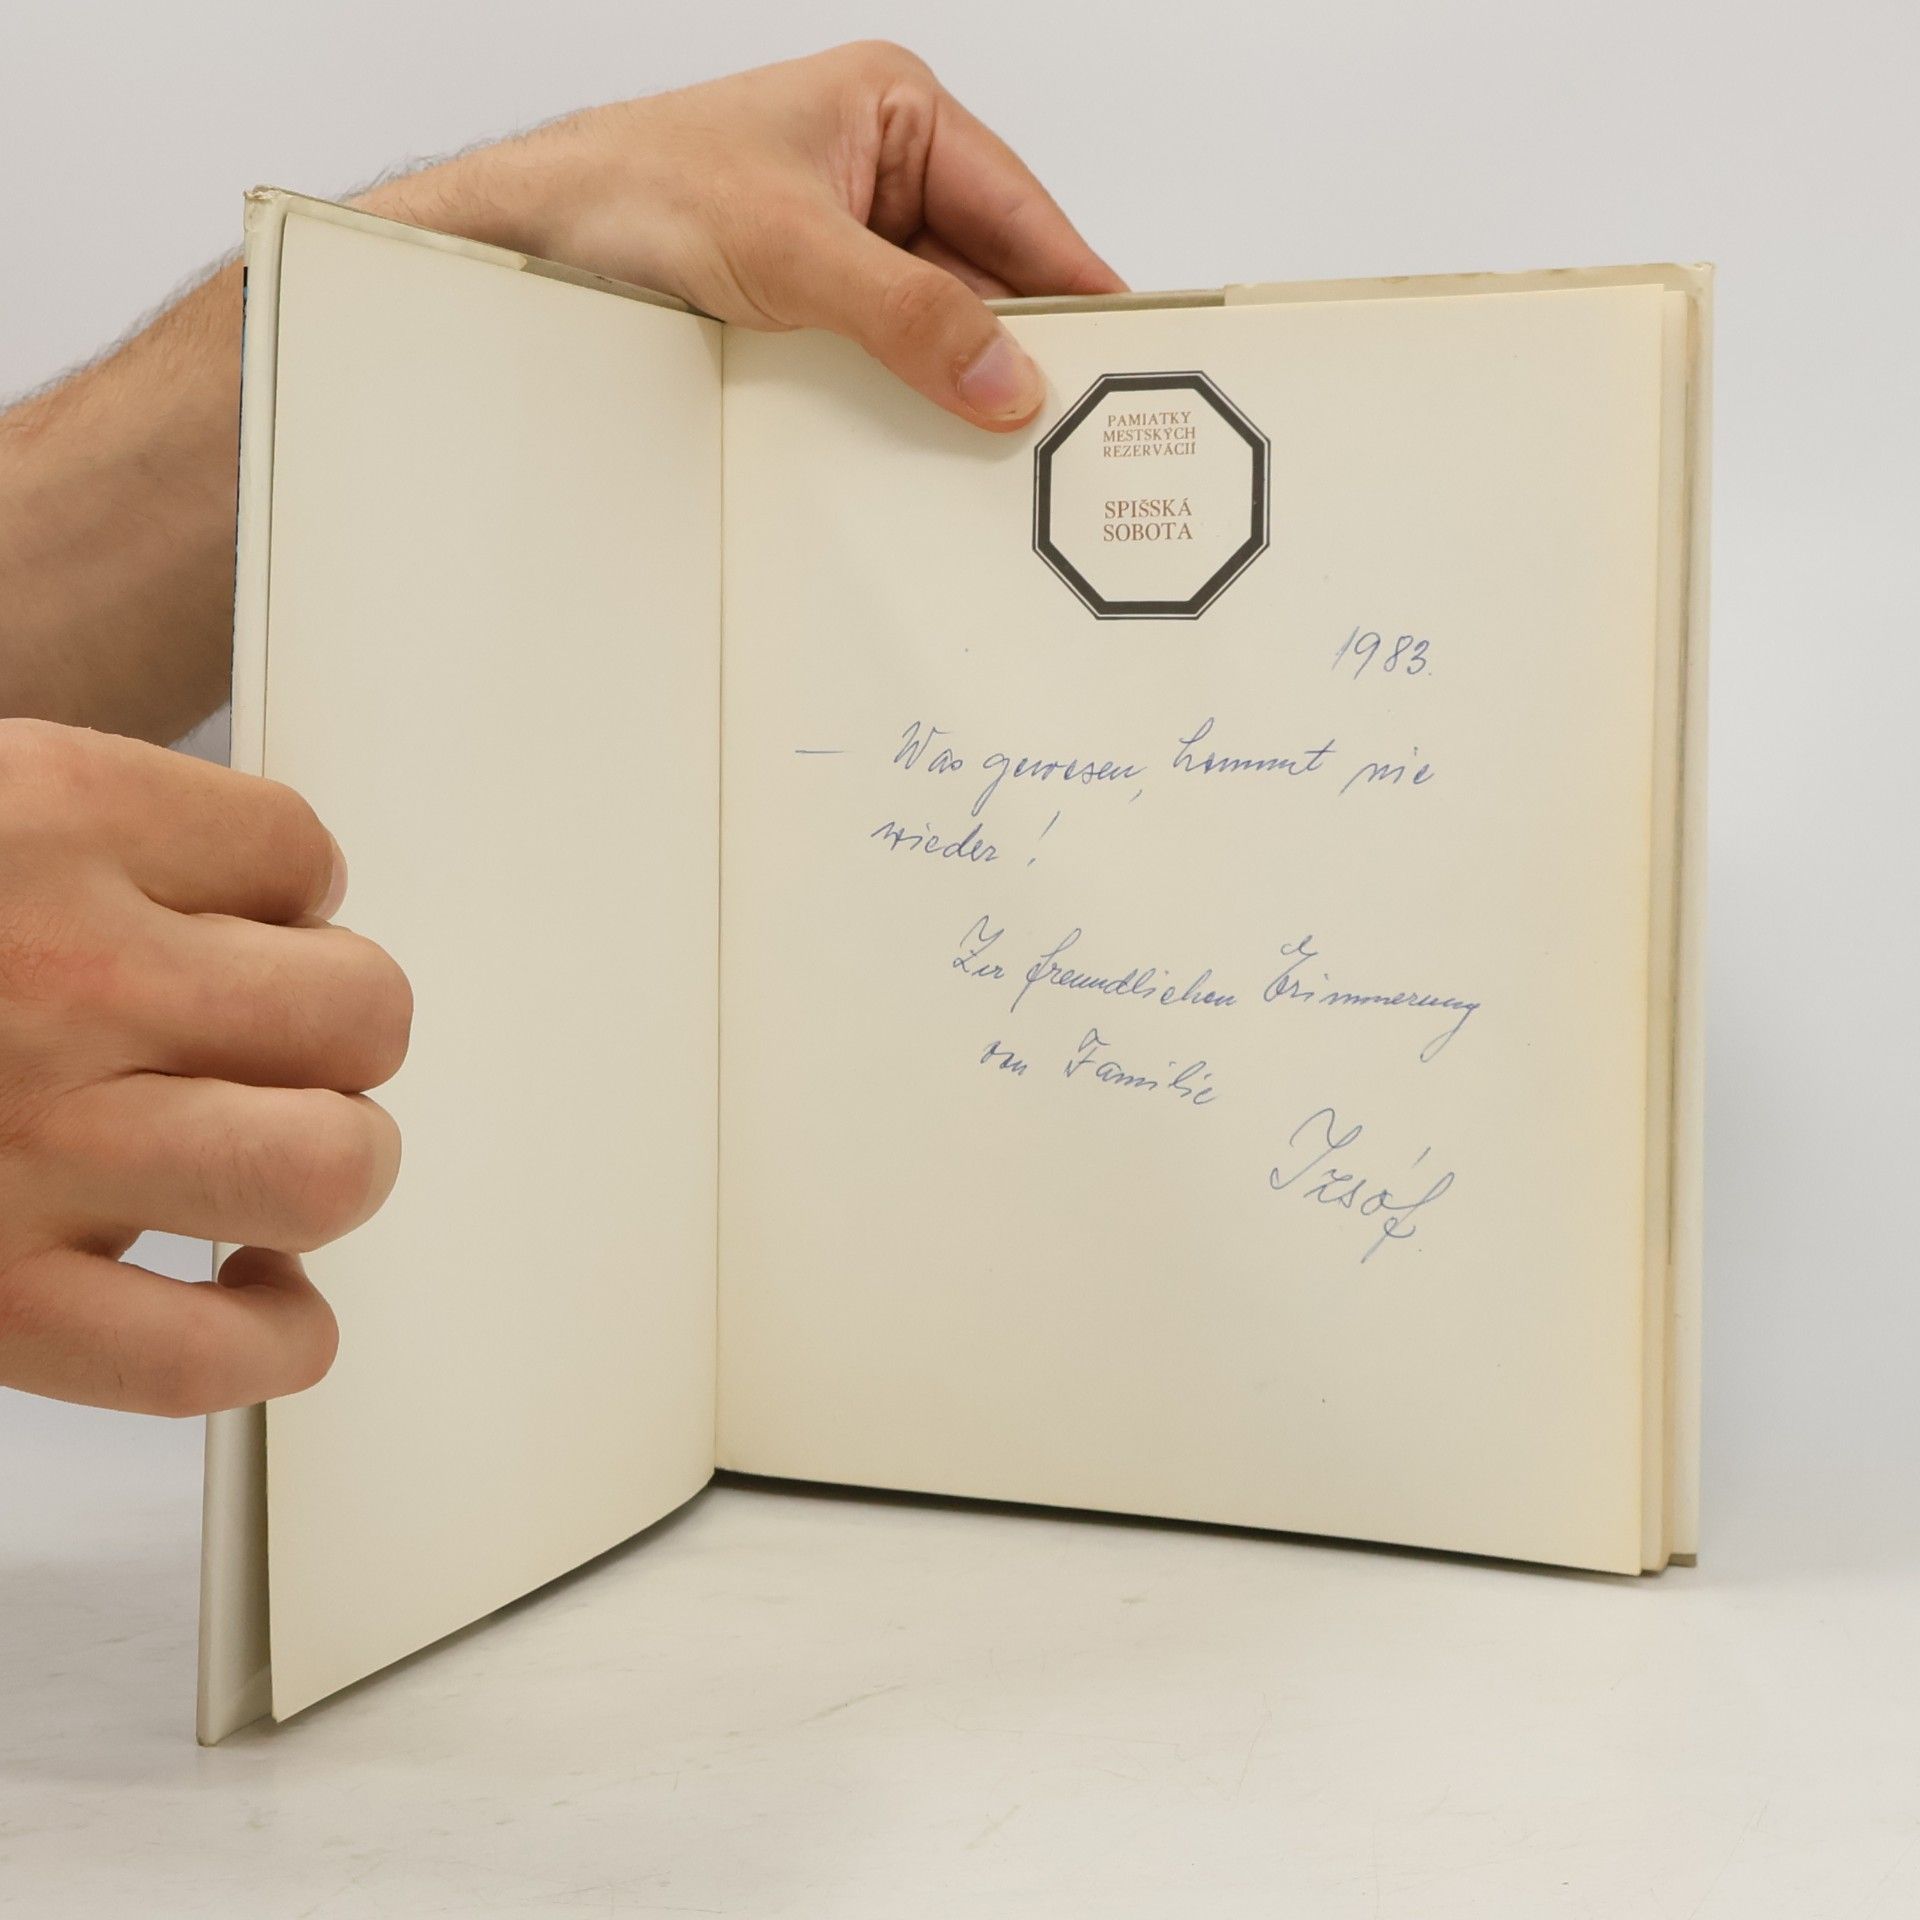 PAMIATKY
MESTSKÝCH
REZERVÁCIÍ
SPIŠSKÁ
SOBOTA
1983.
— Was gewesen, kommt nie
wieder!
Zur freundlichen Erinnerung
von Familie
Izsóf